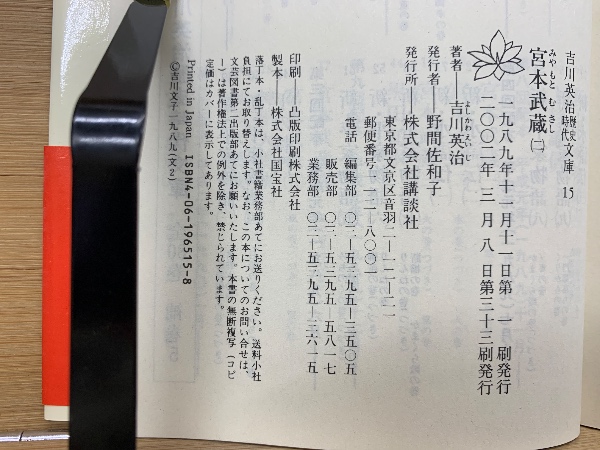 吉川英治歴史時代文庫 15
みやもと むさし
宮本武蔵(二)
一九八九年十一月十一日第 一 刷発行
二〇〇二年 三 月 八 日第三十三刷発行
著者―吉川英治
よしかわえいじ
発行者―野間佐和子
発行所―株式会社講談社
東京都文京区音羽二-一二-二一
郵便番号一一二-八〇〇一
電話 編集部 〇三-五三九五-三五〇五
販売部 〇三-五三九五-五八一七
業務部 〇三-五三九五-三六一五
印刷―凸版印刷株式会社
製本―株式会社国宝社
落丁本・乱丁本は、小社書籍業務部あてにお送りください。送料小社
負担にてお取り替えします。なお、この本についてのお問い合せは、
文芸図書第二出版部あてにお願いいたします。本書の無断複写(コピ
ー)は著作権法上での例外を除き、禁じられています。
定価はカバーに表示してあります。
Printed in Japan ISBN4-06-196515-8
©吉川文子 一九八九(文2)